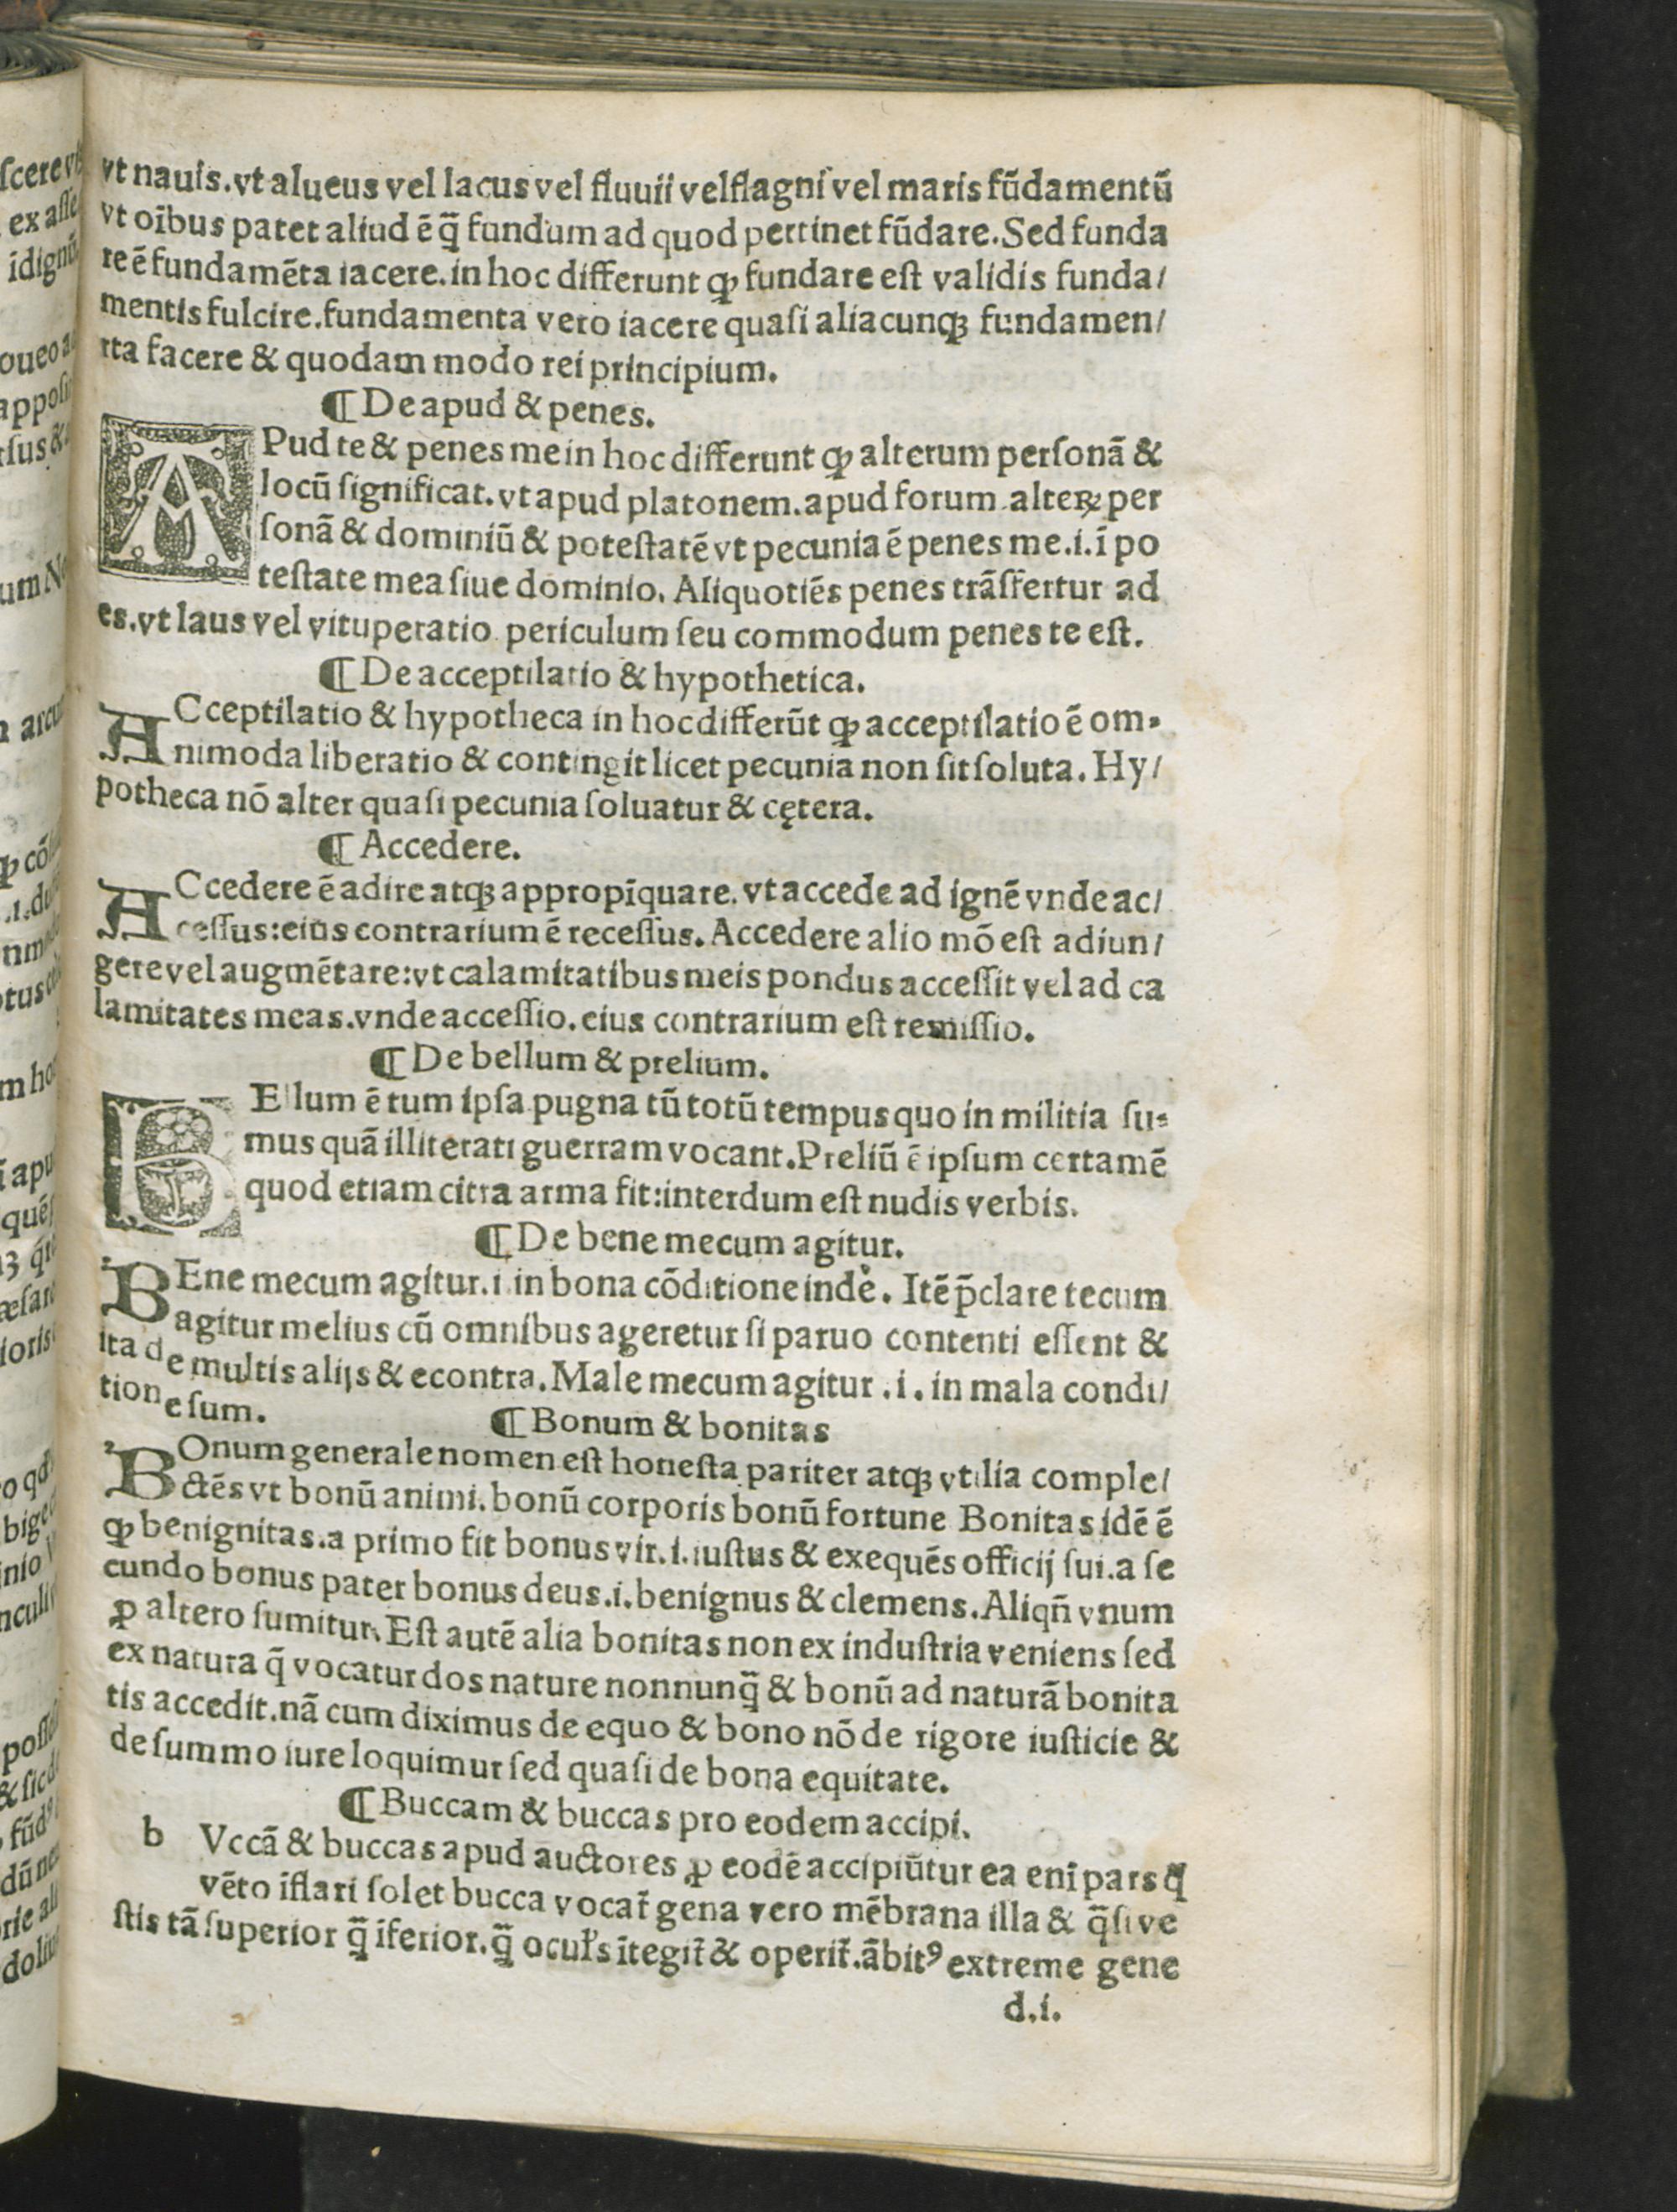 vt nauis.vt alueus vel lacus vel fluuii vel ſtagni vel maris fũdamentũ
vt oĩbus patet aliud ẽ q̃ fundum ad quod pertinet fũdare.Sed funda
re ẽ fundamẽta iacere.in hoc differunt ꝙ fundare eſt validis funda/
mentis fulcire.fundamenta vero iacere quaſi aliacunqꝫ fundamen/
rta facere & quodam modo rei principium.
¶ De apud & penes.
APud te & penes me in hoc differunt ꝙ alterum perſonã &
locũ ſignificat.vt apud platonem.apud forum alteꝝ per
ſonã & dominiũ & poteſtatẽ vt pecunia ẽ penes me.i.ĩ po
teſtate mea ſiue dominio. Aliquotiẽs penes trãſfertur ad
es.vt laus vel vituperatio periculum ſeu commodum penes te eſt.
¶ De acceptilatio & hypothetica.
ACceptilatio & hypotheca in hoc differũt ꝙ acceptilatio ẽ om-
nimoda liberatio & contingit licet pecunia non ſit ſoluta. Hy/
potheca nõ alter quaſi pecunia ſoluatur & cętera.
¶ Accedere.
ACcedere ẽ adire atqꝫ appropĩquare. vt accede ad ignẽ vnde ac/
ceſſus:eius contrarium ẽ receſſus. Accedere alio mõ eſt adiun/
gere vel augmẽtare:vt calamitatibus meis pondus acceſſit vel ad ca
lamitates meas.vnde acceſſio.eius contrarium eſt remiſſio.
¶ De bellum & prelium.
BEllum ẽ tum ipſa pugna tũ totũ tempus quo in militia ſu-
mus quã illiterati guerram vocant.Preliũ ẽ ipſum certamẽ
quod etiam citra arma fit:interdum eſt nudis verbis.
¶ De bene mecum agitur.
BEne mecum agitur.i in bona cõditione inde. Itẽ p̃clare tecum
agitur melius cũ omnibus ageretur ſi paruo contenti eſſent &
ita de multis alijs & econtra. Male mecum agitur .i. in mala condi/
tione ſum.
¶ Bonum & bonitas
BOnum generale nomen eſt honeſta pariter atqꝫ vtilia comple/
ctẽs vt bonũ animi.bonũ corporis bonũ fortune Bonitas idẽ ẽ
ꝙ benignitas.a primo fit bonus vir.i.iuſtus & exequẽs officij ſui.a ſe
cundo bonus pater bonus deus.i.benignus & clemens.Aliqñ vnum
ꝓ altero ſumitur. Eſt autẽ alia bonitas non ex induſtria veniens ſed
ex natura q̃ vocatur dos nature nonnunq̃ & bonũ ad naturã bonita
tis accedit.nã cum diximus de equo & bono nõ de rigore iuſticie &
de ſummo iure loquimur ſed quaſi de bona equitate.
¶ Buccam & buccas pro eodem accipi.
b Vccã & buccas apud auctores ꝓ eodẽ accipiũtur ea enĩ pars q̃
vẽto ĩflari ſolet bucca vocat᷑ gena vero mẽbrana illa & q̃ſi ve
ſtis tã ſuperior q̃ ĩferior.q̃ ocuľs ĩtegit᷑ & operit᷑.ãbitꝰ extreme gene
d.i.